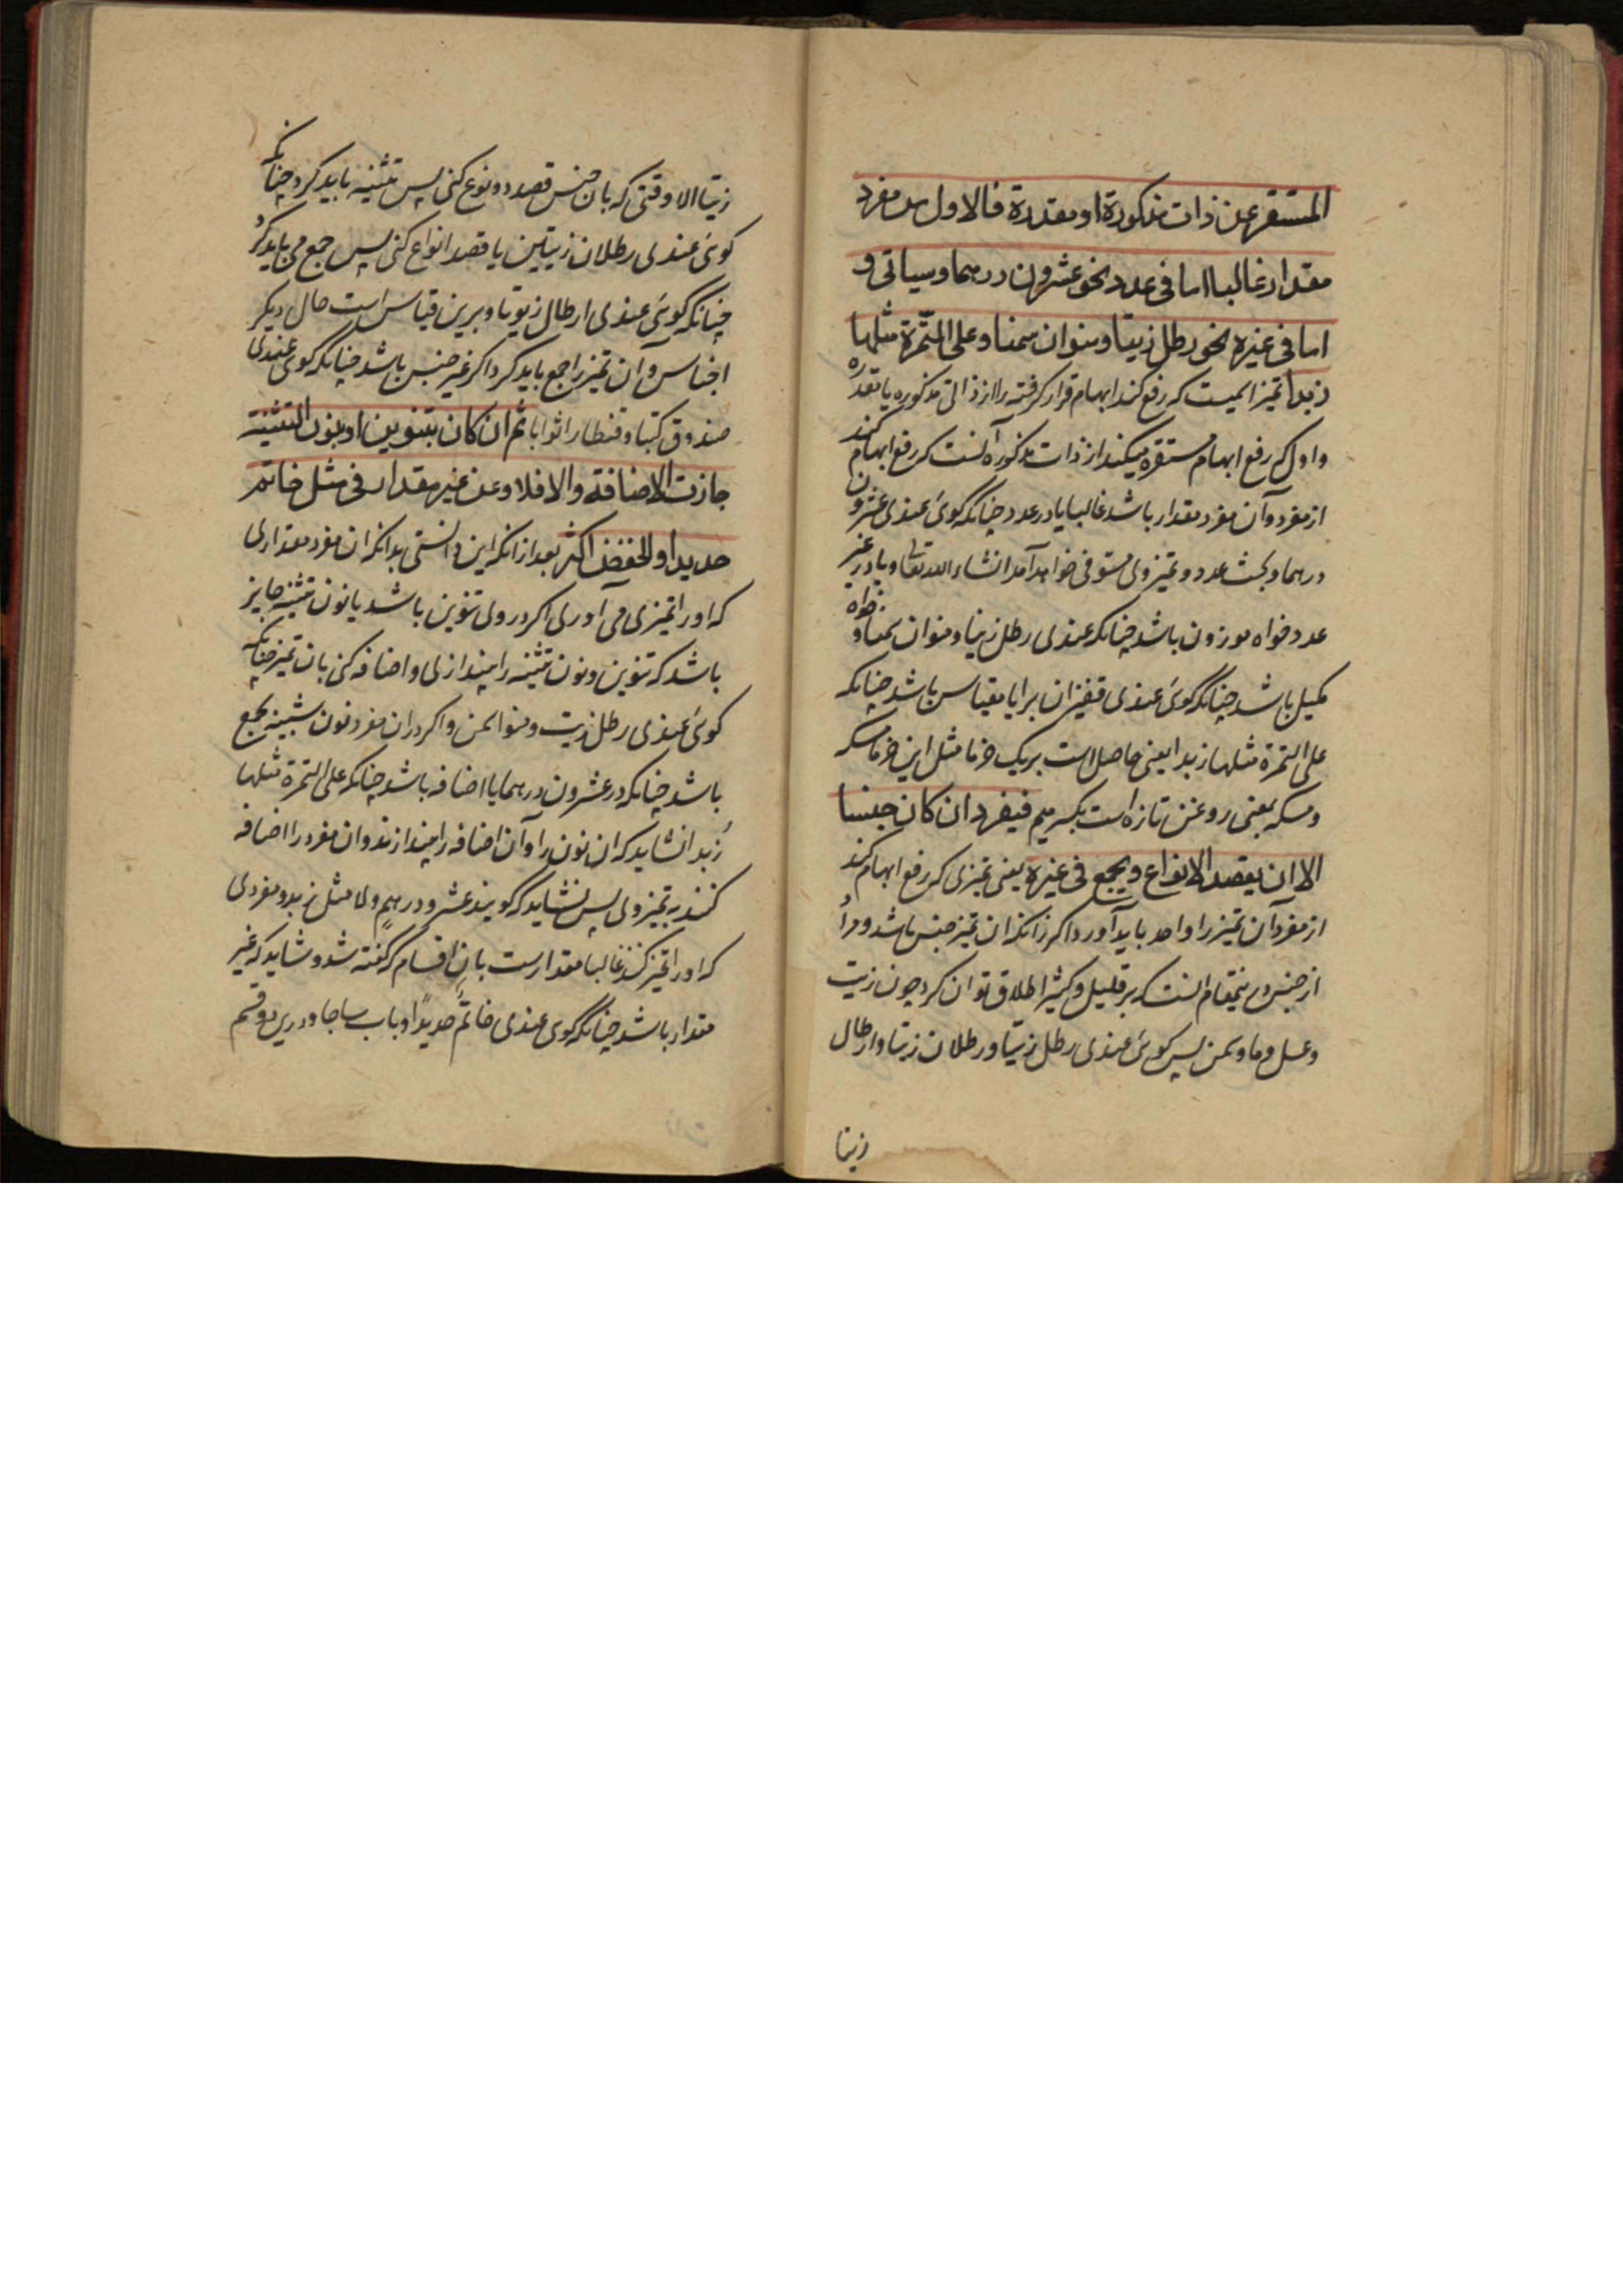 المستقر عن ذات مذكورة او مقدرة فالاول عن مفرد
مقدار غالبا اما فى عدد نحو عشرون درهما وسياتى و
اما فى غيره نحو رطل زيتا ومنوان سمنا وعلى التمرة مثلها
زبدا تميز ايميست كه رفع كند ابهام قرار گرفته را از ذاتى مذكوره يا مقدره
و اول كه رفع ابهام مستقره ميكند از ذات مذكوره آنست كه رفع ابهام كند
از مفرد و آن مفرد مقدار باشد غالبا يا در عدد چنانكه كوئى عندى عشرون
درهما و بحث عدد و تميز وى مستوفى خواهد آمد انشاء الله تعالى و يا در غير
عدد خواه موزون باشد چنانكه عندى رطل زيتا و منوان سمنا و خواه
مكيل باشد چنانكه كوئى عندى قفيزان برا يا مقياس باشد چنانكه
على التمرة مثلها زبدا يعنى حاصل است بر يك خرما مثل اين خرما مسكه
و مسكه بمعنى روغن تازه است بكسر ميم فيفرد ان كان جنسا
الا ان يقصد الانواع ويجمع فى غيره يعنى تميزى كه رفع ابهام كند
از مفرد آن تميز را واحد بايد آورد اكر زانكه ان تميز جنس باشد و مراد
از جنس درينمقام انست كه بر قليل و كثير اطلاق توان كرد چون زيت
و عسل و ما و سمن پس كوئى عندى رطل زيتا و رطلان زيتا و ارطال
زيتا
زيتا الا وقتى كه بان جنس قصد دو نوع كنى پس تثنيه بايد كرد چنانكه
كوئى عندى رطلان زيتين يا قصد انواع كنى پس جمع مى بايد كرد
چنانكه كوئى عندى ارطال زيوتا و برين قياس است حال ديكر
اجناس و آن تميز را جمع بايد كرد اكر غير جنس باشد چنانكه كوى عندى
صندوق كتبا و قنطار اثوابا ثم ان كان بتنوين او بنون التثنية
جازت الاضافة والا فلا وعن غير مقدار فى مثل خاتم
حديدا والخفض اكثر بعد از انكه اين دانستى بدانكه ان مفرد مقدارى
كه او را تميزى مى آورى اكر در وى تنوين باشد يا نون تثنيه جايز
باشد كه تنوين و نون تثنيه را بيندازى و اضافه كنى بان تميز چنانكه
كوئى عندى رطل زيت و منوا سمن و اكر در ان مفرد نون شبيه بجمع
باشد چنانكه در عشرون درهما يا اضافه باشد چنانكه على التمرة مثلها
زبدا نشايد كه ان نون را و آن اضافه را بيندازند و ان مفرد را اضافه
كنند به تميز وى پس نشايد كه كويند عشرو درهم و لا مثل زبد و مفردى
كه او را تميز كنند غالبا مقدارست بان اقسام كه كفته شد و شايد كه غير
مقدار باشد چنانكه كوى عندى خاتم حديدا و باب ساجا و درين دو قسم